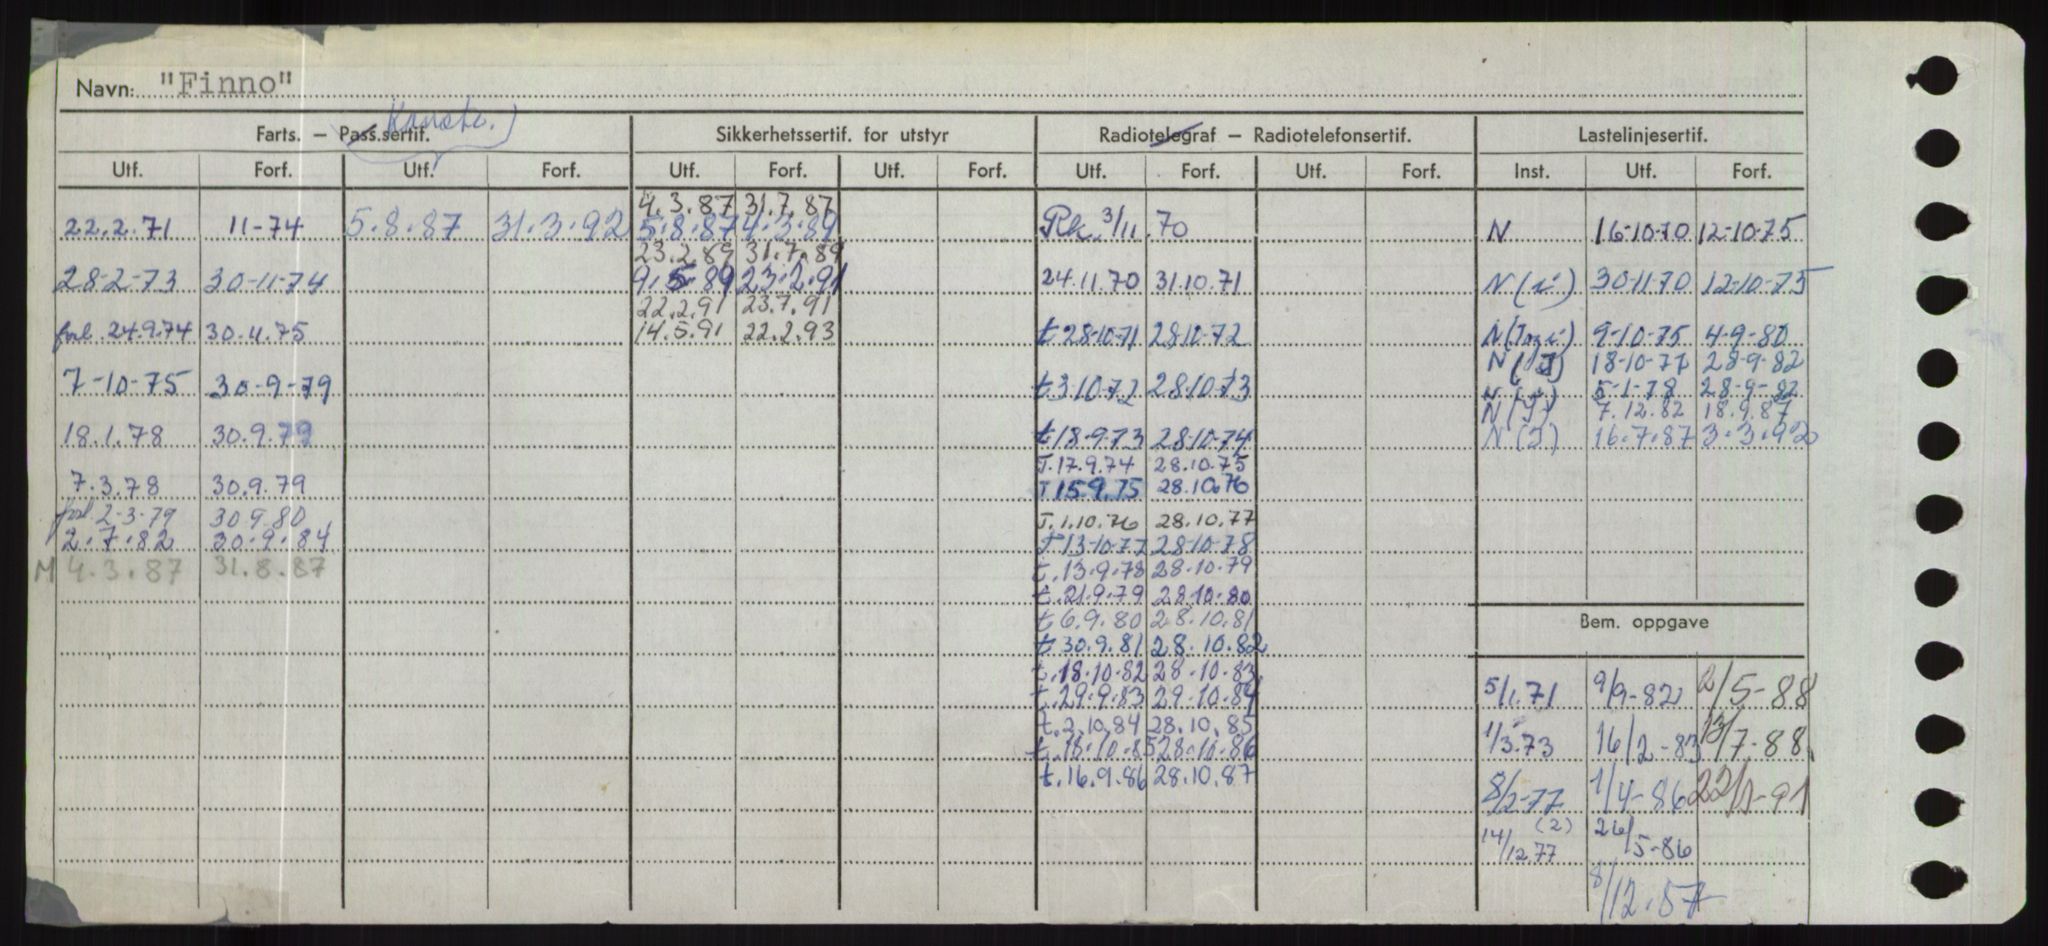 Navn: "Finno"
Farts. — Pass.sertif. Konstr.
Sikkerhetssertif. for utstyr
Radiotelegraf — Radiotelefonsertif.
Lastelinjesertif.
Utf. Forf. Utf. Forf. Utf. Forf. Utf. Forf. Utf. Forf. Utf. Forf. Inst. Utf. Forf.
22.2.71 11-74 5.8.87 31.3.92
28-2-73 30-11-74
forl. 24.9.74 30.11.75
7-10-75 30-9-79
18.1.78 30.9.79
7.3.78 30.9.79
forl. 2-3-79 30.9.80
2.7.82 30.9.84
M 4.3.87 31.8.87
4.3.87 31.7.87
5.8.87 4.3.89
23.2.89 31.7.89
9.5.89 23.2.91
22.2.91 23.7.91
14.5.91 22.2.93
Rk. 3/11.70
24.11.70 31.10.71
t 28-10-71 28-10-72
t 3-10-72 28-10-73
t 18-9-73 28-10-74
T. 17.9.74 28.10.75
T 15.9.75 28.10.76
T. 1.10.76 28.10.77
T 13-10-77 28-10-78
t. 13.9.78 28.10.79
t. 21.9.79 28.10.80
t 6.9.80 28.10.81
t. 30.9.81 28.10.82
t. 18.10.82 28.10.83
t. 29.9.83 29.10.84
t. 2.10.84 28.10.85
t. 18.10.85 28.10.86
t. 16.9.86 28.10.87
N 16-10-70 12-10-75
N (i) 30-11-70 12-10-75
9-10-75 4-9-80
18-10-77 28-9-82
5-1-78 28-9-82
7.12.82 18.9.87
N (I) 16.7.87 3.3.92
Bem. oppgave
5/1.71 9/9-82 2/5-88
1/3.73 16/2-83 13/7-88
8/2-77 1/4-86 22/1-91
14/12.77 (2) 26/5-86
8/12.87